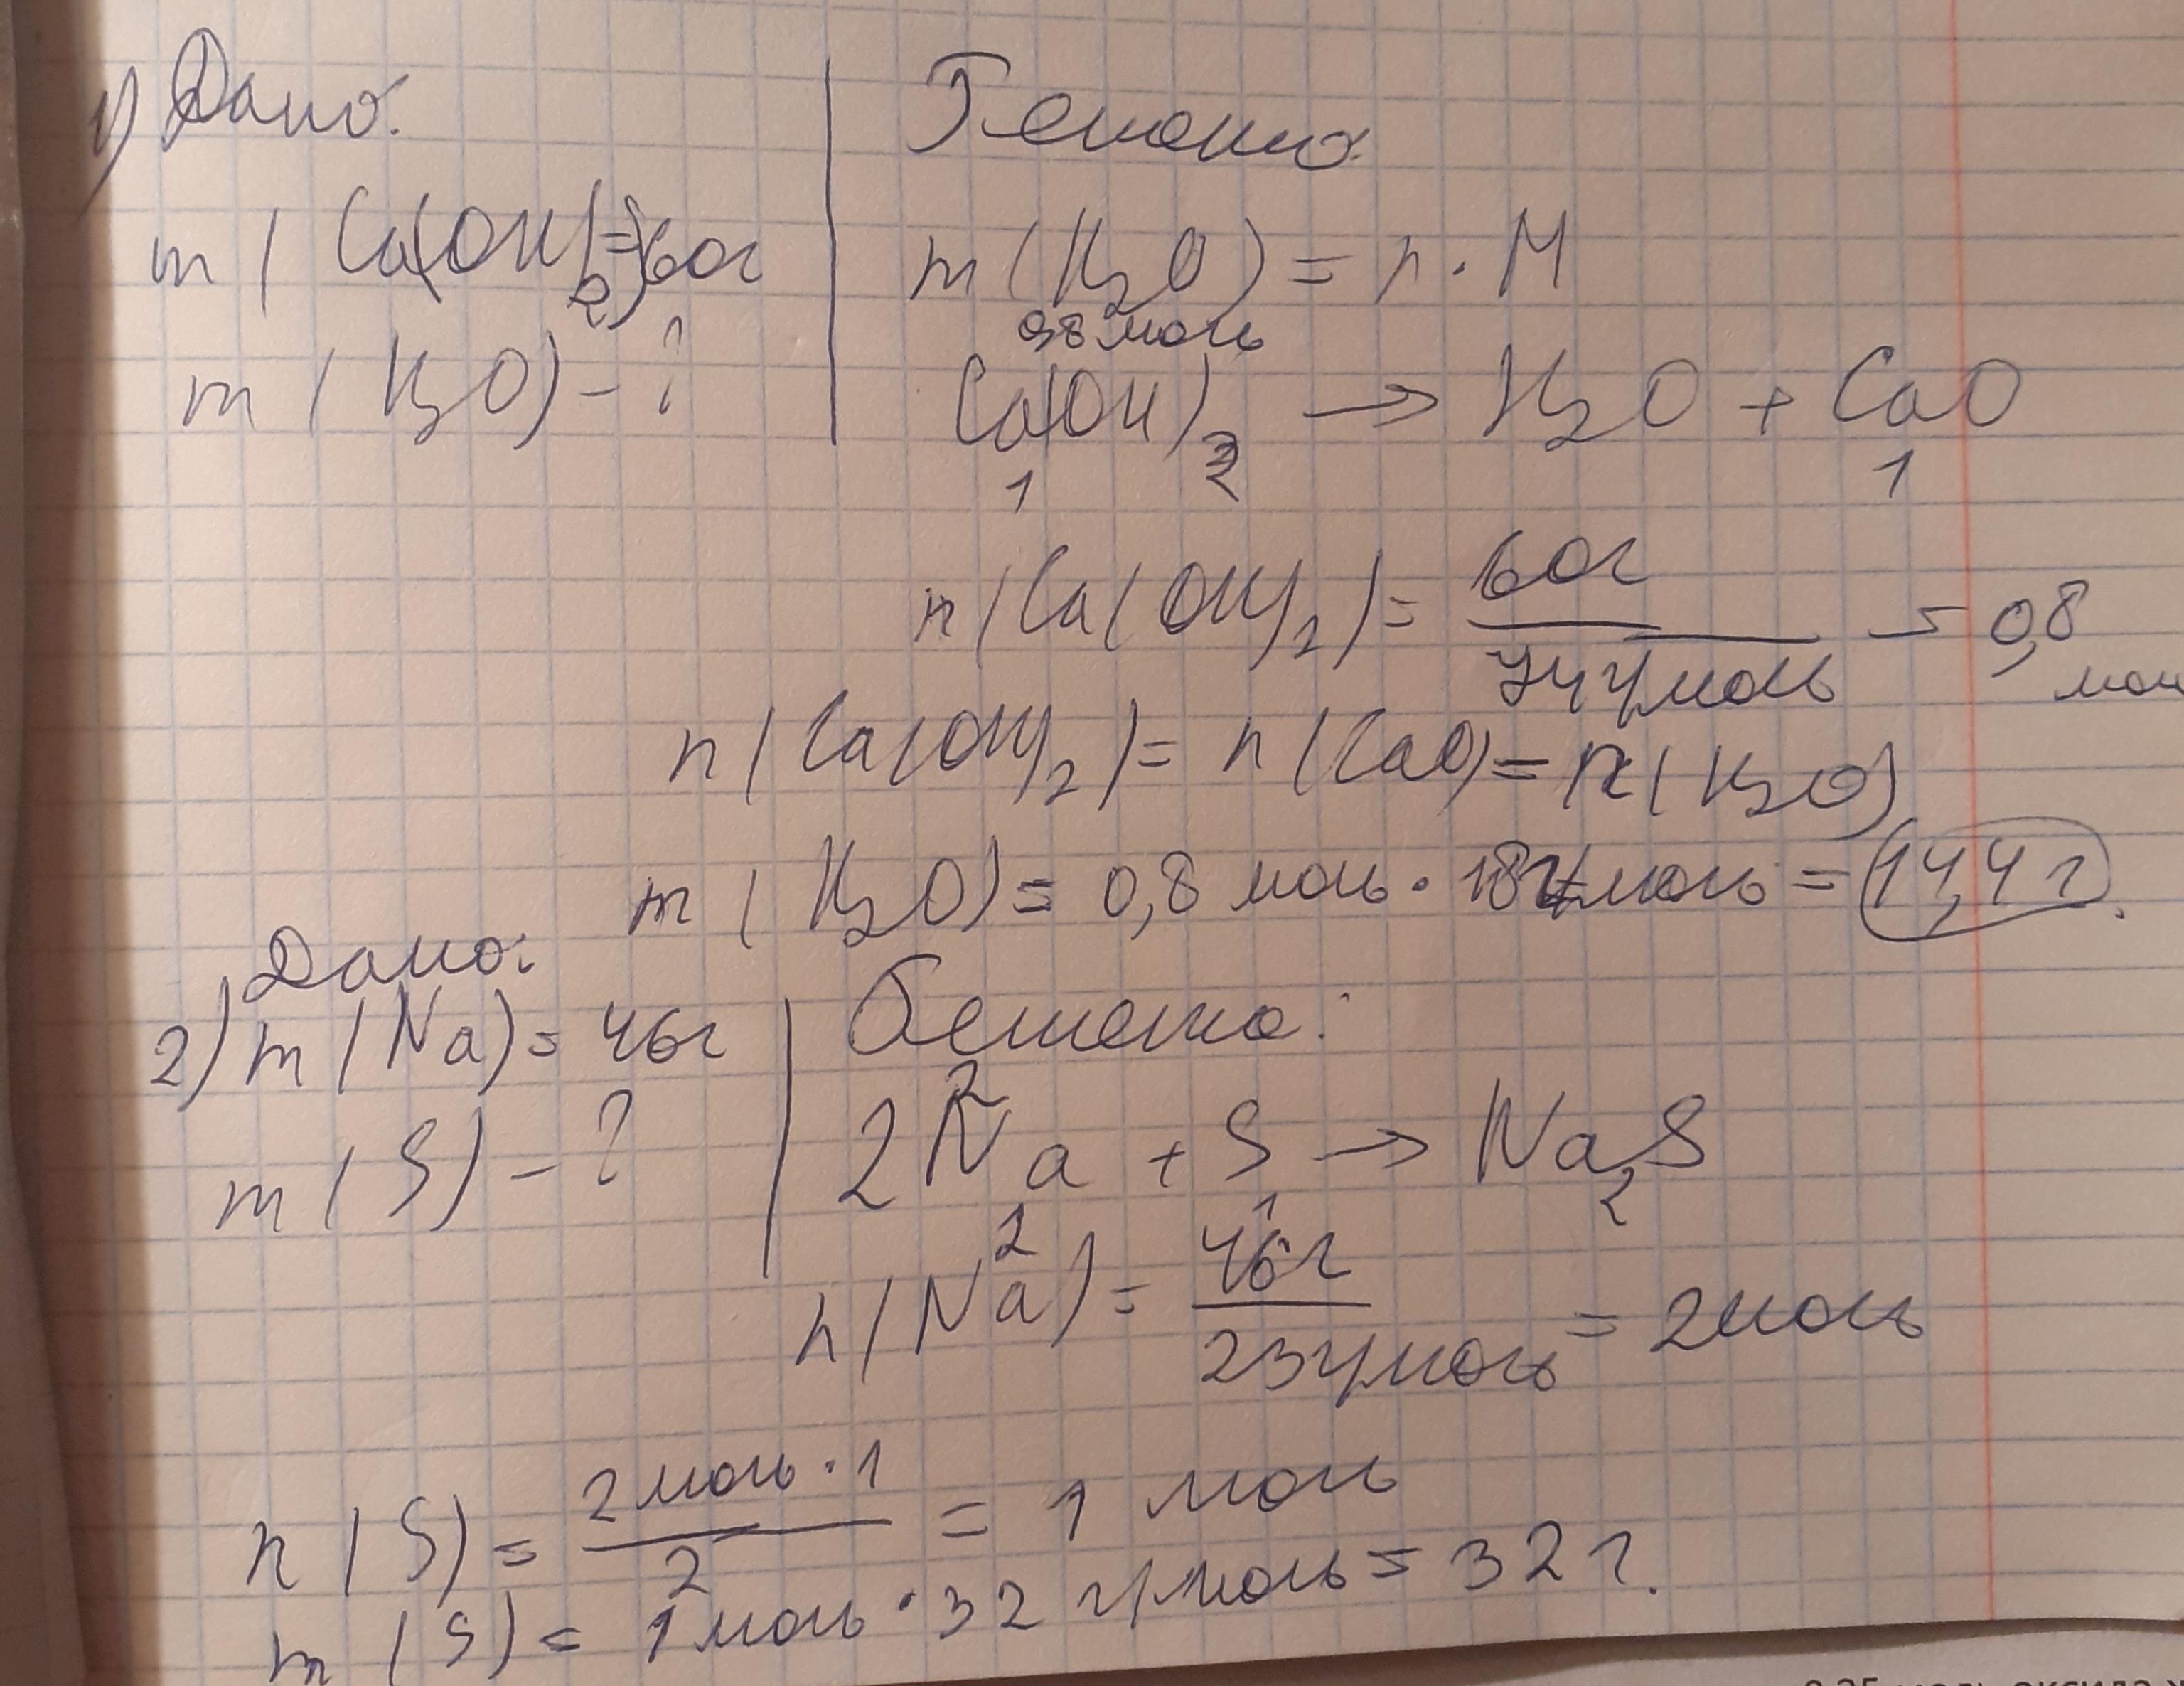 1) Дано:
m(Ca(OH)2)=60г
m(H2O) - ?
Решение
m(H2O) = n · M
0,8 моль
Ca(OH)2 → H2O + CaO
1 1
n(Ca(OH)2) = 60г / 74 г/моль = 0,8 моль
n(Ca(OH)2) = n(CaO) = n(H2O)
m(H2O) = 0,8 моль · 18 г/моль = 14,4 г.
Дано:
2) m(Na) = 46г
m(S) - ?
Решение:
2
2Na + S → Na2S
2 1
n(Na) = 46г / 23 г/моль = 2 моль
n(S) = 2 моль · 1 / 2 = 1 моль
m(S) = 1 моль · 32 г/моль = 32 г.